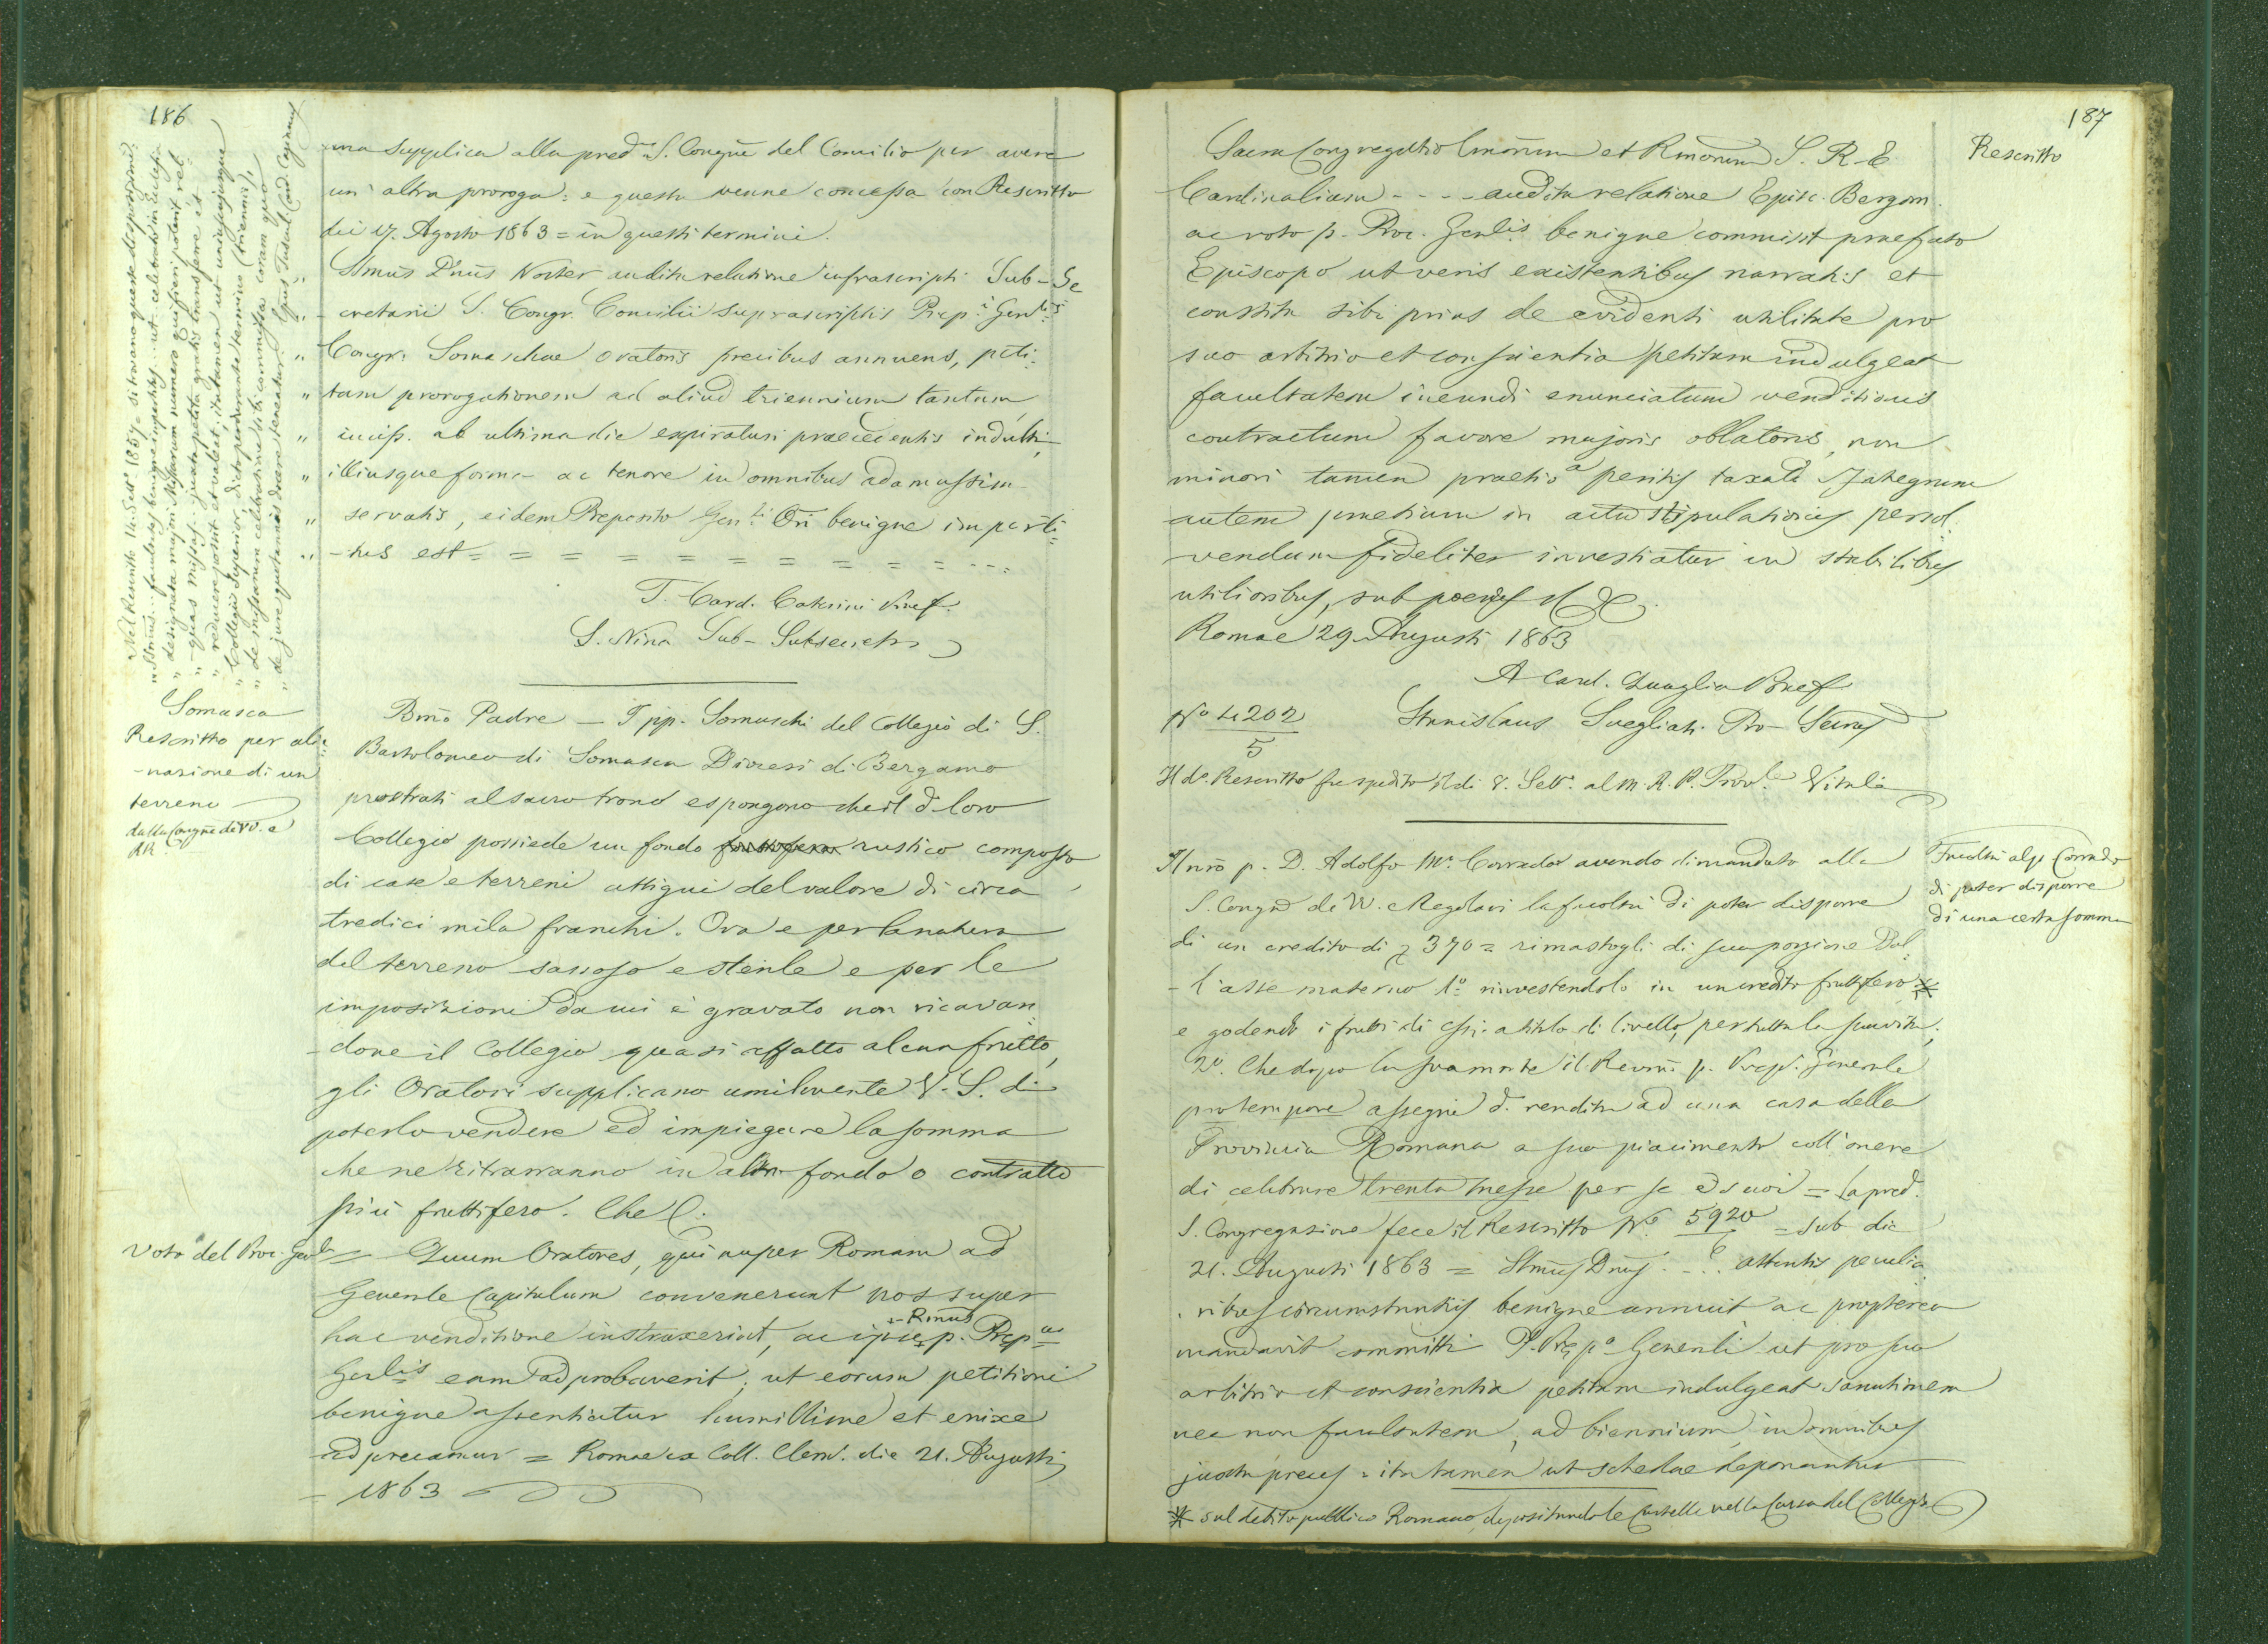 186
una supplica alla pred.a S. Congñe del Concilio per avere
un' altra proroga: e questa venne concessa con Rescritto
dei 17. Agosto 1863 = in questi termini.
" SSmus D'nus Noster audita relatione infrascripti Sub-Se
" cretarii S. Congr. Concilii suprascriptis Prep.i Gen.lis
" Congr. Somaschae oratoris precibus annuens, peti:
" tam prorogationem ad aliud triennium tantum
" incip. ab ultima die expiraturi praecedentis indulti,
" illiusque forma ac tenore in omnibus adamussim
" servatis, eidem Preposito Gen.li Ori benigne imperti:
" -tus est = = = = = = = = = = - - :
P. Card. Caterini Praef.
L. Nina Sub-
" Nel Rescritto 14. Sett.e 1857 = si trovano queste disposizioni:
" SSmus... facultates benigne impertitus... ut celebrati in Ecclesia
" designata majori Missarum numero qui fieri poterit vel
" quas missas... juxta petita gratis transferre et
" reducere possit et valeat, ita tamen ut uniuscujusque
" Collegii Superior, dicto perdurante termino (triennii),
" de missarum celebratione sibi commissa coram quo
" de jure quotannis docere teneatur. Epus Tuscul. Card. Cagiano
Somasca
Rescritto per alie:
-nazione di un
terreno
dalla Congñe dei VV. e
RR.
Bmo Padre — I pp. Somaschi del Collegio di S.
Bartolomeo di Somasca Diocesi di Bergamo
prostrati al sacro trono espongono che il d. loro
Collegio possiede un fondo rustico composto
di case e terreni attigui del valore di circa
tredici mila franchi. Ora e per la natura
del terreno sassoso e sterile e per le
imposizioni da cui è gravato non ricavan
-done il Collegio quasi affatto alcun frutto,
gli Oratori supplicano umilmente V. S. di
poterlo vendere ed impiegare la somma
che ne ritrarranno in altro fondo o contratto
più fruttifero. Che &.
Voto del Proc. Genle = Quum Oratores, qui nuper Romam ad
Generale Capitulum convenerunt nos super
hac venditione instruxerint, ac ipse + Rmus p. Prep.us
Genlis eam adprobaverit, ut eorum petitioni
benigne assentiatur humillime et enixe
adprecamur = Romae ex Coll. Clem. die 21. Augusti
- 1863
187
Rescritto
Sacra Congregatio Emorum et Rmorum S. R. E
Cardinalium - - - - audita relatione Episc. Bergom.
ac voto p. Proc. Genlis benigne commisit praefato
Episcopo ut veris existentibus narratis et
constito sibi prius de evidenti utilitate pro
suo arbitrio et conscientia petitam indulgeat
facultatem ineundi enunciatum venditionis
contractum favore majoris oblatoris, non
minori tamen praetio a peritis taxato Integrum
autem praetium in actu stipulationis persol:
-vendum fideliter investiatur in stabilibus
utilioribus, sub poenis &
Romae 29. Augusti 1863
A Card. Quaglia Praef
No 4202
5
Stanislaus Svegliati Pro-Secrius
Il do. Rescritto fu spedito il di 8. Sett.e al M. R. P. Prov.le Vitali
Facoltà al p. Corrado
di poter disporre
di una certa somma
Il nro p. D. Adolfo Mo. Corrado avendo dimandato alla
S. Congne de VV. e Regolari la facoltà di poter disporre
di un credito di 370 = rimastogli di sua porzione dal
- l'asse materno 1o rinvestendolo in un credito fruttifero *
e godendo i frutti di essi a titolo di livello, per tutta la sua vita;
2o. Che dopo la sua morte il Revmo p. Prep. Generale
pro tempore assegni d. rendita ad una casa della
Provincia Romana a suo piacimento coll'onere
di celebrare trenta messe per se ed suoi = La pred.
S. Congregazione fece il Rescritto No. 5920
6
= sub die
21. Augusti 1863 = SSmus Dnus . - . . attentis peculia
ribus circumstantiis benigne annuit ac propterea
mandavit committi P. Prepo Generali ut pro suo
arbitrio et conscientia petitam indulgeat sanationem
nec non facultatem, ad biennium, in omnibus
juxta preces. ita tamen ut schedae deponantur
* sul debito pubblico Romano, depositando le Cartelle nella Cassa del Collegio